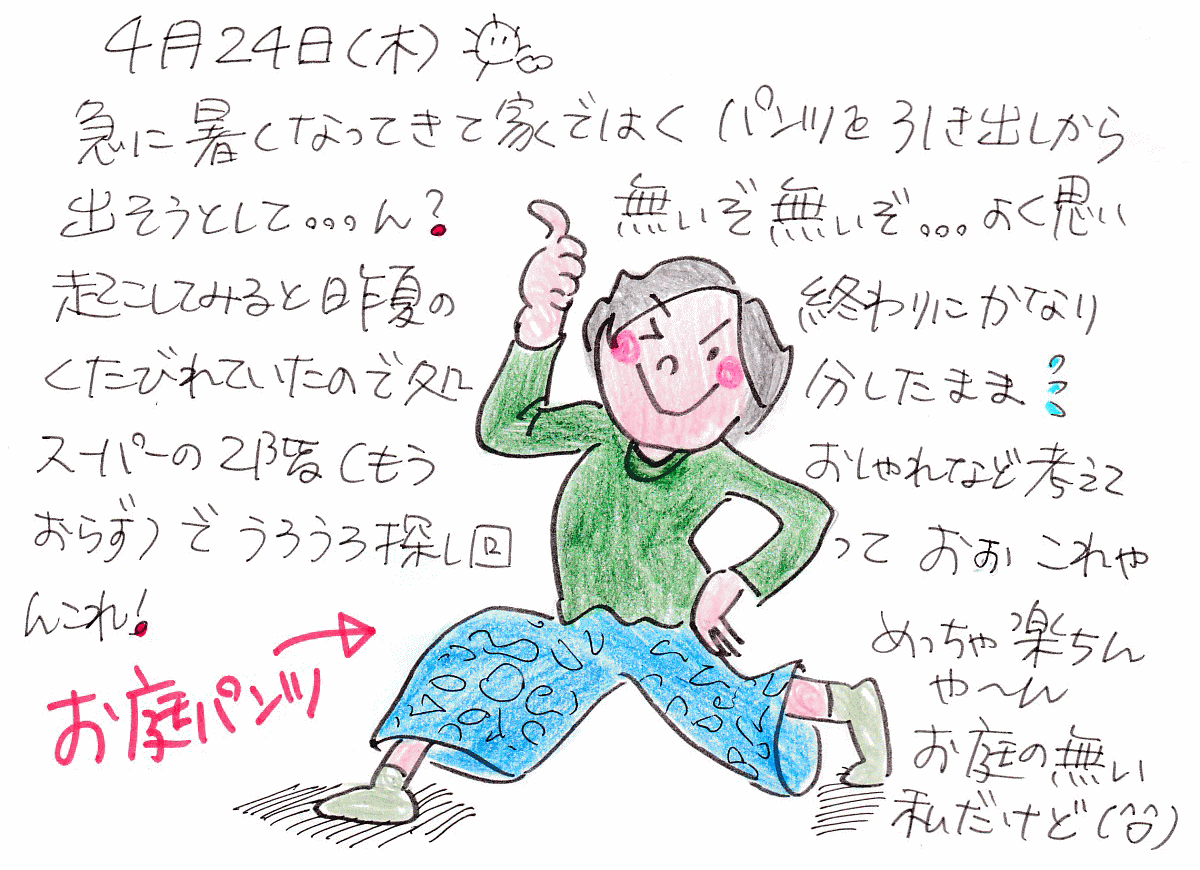 4月24日(木)
急に暑くなってきて家ではくパンツを引き出しから
出そうとして。。。ん? 無いぞ無いぞ。。。よく思い
起こしてみると昨夏の 終わりにかなり
くたびれていたので処 分したまま
スーパーの2階(もう おしゃれなど考えて
おらず)でうろうろ探し回 って おぉ これや
んこれ! めっちゃ楽ちん
や〜ん
お庭パンツ
お庭の無い
私だけど(^O^)